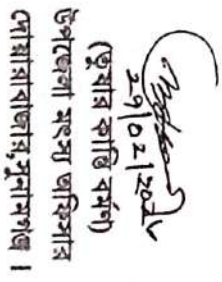 (তুষার কান্তি বর্মণ)
উপজেলা মৎস্য অফিসার
দোয়ারাবাজার,সুনামগঞ্জ।